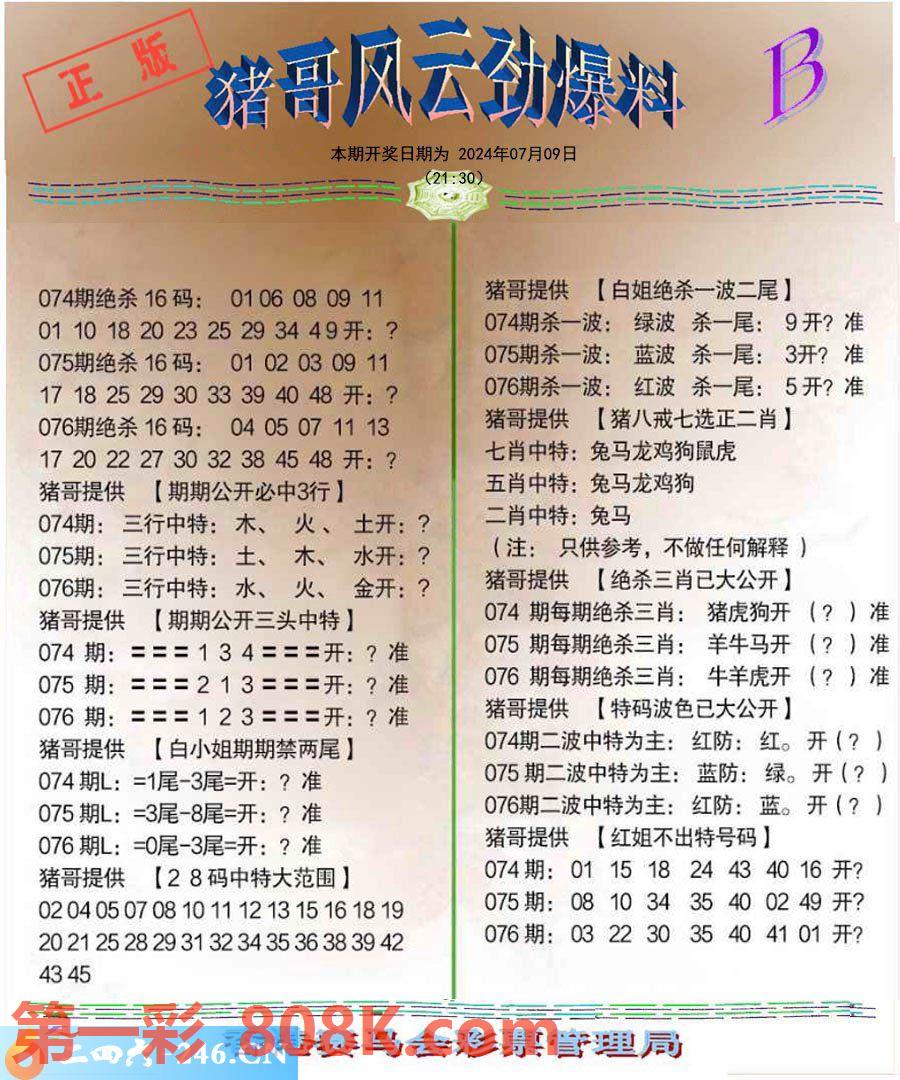 正版
猪哥风云劲爆料
B
本期开奖日期为 2024年07月09日
(21:30)
074期绝杀16码： 01 06 08 09 11
01 10 18 20 23 25 29 34 49开：?
075期绝杀16码： 01 02 03 09 11
17 18 25 29 30 33 39 40 48 开：?
076期绝杀16码： 04 05 07 11 13
17 20 22 27 30 32 38 45 48 开：?
猪哥提供 【期期公开必中3行】
074期：三行中特：木、 火、 土开：?
075期：三行中特：土、 木、 水开：?
076期：三行中特：水、 火、 金开：?
猪哥提供 【期期公开三头中特】
074 期：===１３４===开：? 准
075 期：===２１３===开：? 准
076 期：===１２３===开：? 准
猪哥提供 【白小姐期期禁两尾】
074期L：=1尾-3尾=开：? 准
075期L：=3尾-8尾=开：? 准
076期L：=0尾-3尾=开：? 准
猪哥提供 【２８码中特大范围】
02 04 05 07 08 10 11 12 13 15 16 18 19
20 21 25 28 29 31 32 34 35 36 38 39 42
43 45
猪哥提供 【白姐绝杀一波二尾】
074期杀一波： 绿波 杀一尾： 9开? 准
075期杀一波： 蓝波 杀一尾： 3开? 准
076期杀一波： 红波 杀一尾： 5开? 准
猪哥提供 【猪八戒七选正二肖】
七肖中特：兔马龙鸡狗鼠虎
五肖中特：兔马龙鸡狗
二肖中特：兔马
（注： 只供参考，不做任何解释 ）
猪哥提供 【绝杀三肖已大公开】
074 期每期绝杀三肖： 猪虎狗开 （? ）准
075 期每期绝杀三肖： 羊牛马开 （? ）准
076 期每期绝杀三肖： 牛羊虎开 （? ）准
猪哥提供 【特码波色已大公开】
074期二波中特为主：红防：红。开（? ）
075期二波中特为主：蓝防：绿。开（? ）
076期二波中特为主：红防：蓝。开（? ）
猪哥提供 【红姐不出特号码】
074期：01 15 18 24 43 40 16 开?
075期：08 10 34 35 40 02 49 开?
076期：03 22 30 35 40 41 01 开?
第一彩 808K.com
二四六-246.CN
彩票管理局